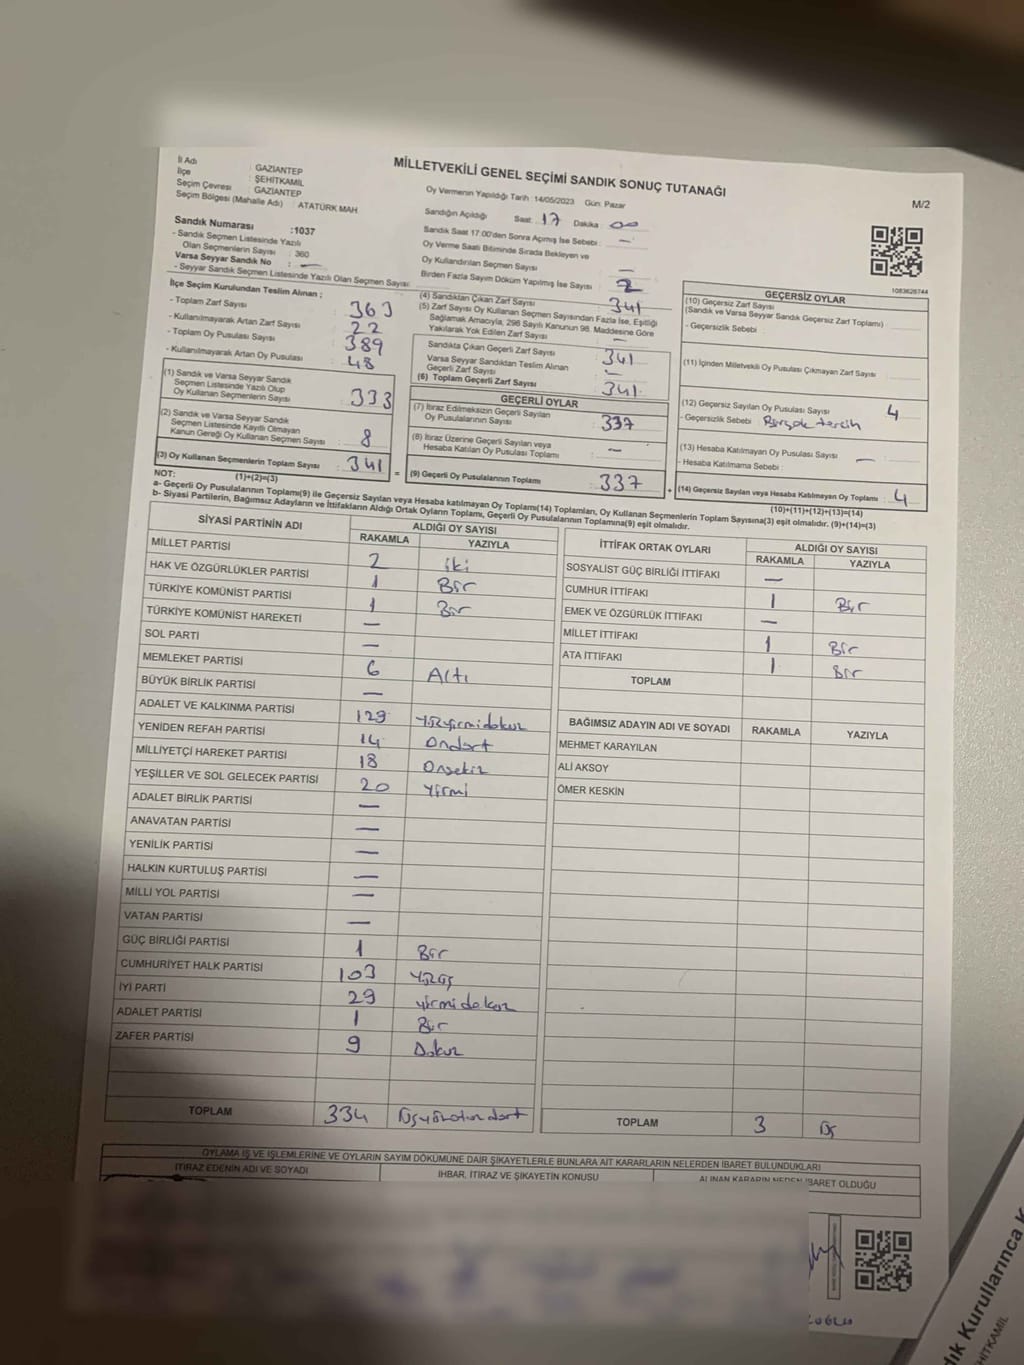 MİLLETVEKİLİ GENEL SEÇİMİ SANDIK SONUÇ TUTANAĞI
M/2
İl Adı : GAZİANTEP
İlçe : ŞEHİTKAMİL
Seçim Çevresi : GAZİANTEP
Seçim Bölgesi (Mahalle Adı) : ATATÜRK MAH
Sandık Numarası :1037
- Sandık Seçmen Listesinde Yazılı
Olan Seçmenlerin Sayısı : 360
Varsa Seyyar Sandık No : —
- Seyyar Sandık Seçmen Listesinde Yazılı Olan Seçmen Sayısı
Oy Vermenin Yapıldığı Tarih : 14/05/2023 Gün: Pazar
Sandığın Açıldığı Saat: 17 Dakika : 00
Sandık Saat 17.00'den Sonra Açımış İse Sebebi : —
Oy Verme Saati Bitiminde Sırada Bekleyen ve
Oy Kullandırılan Seçmen Sayısı —
Birden Fazla Sayım Döküm Yapılmış İse Sayısı : 2
1083626744
İlçe Seçim Kurulundan Teslim Alınan ;
- Toplam Zarf Sayısı : 363
- Kullanılmayarak Artan Zarf Sayısı : 22
- Toplam Oy Pusulası Sayısı : 389
- Kullanılmayarak Artan Oy Pusulası : 48
(1) Sandık ve Varsa Seyyar Sandık
Seçmen Listesinde Yazılı Olup
Oy Kullanan Seçmenlerin Sayısı : 333
(2) Sandık ve Varsa Seyyar Sandık
Seçmen Listesinde Kayıtlı Olmayan
Kanun Gereği Oy Kullanan Seçmen Sayısı : 8
(3) Oy Kullanan Seçmenlerin Toplam Sayısı : 341
(1)+(2)=(3)
(4) Sandıktan Çıkan Zarf Sayısı : 341
(5) Zarf Sayısı Oy Kullanan Seçmen Sayısından Fazla İse, Eşitliği
Sağlamak Amacıyla, 298 Sayılı Kanunun 98. Maddesine Göre
Yakılarak Yok Edilen Zarf Sayısı : —
Sandıkta Çıkan Geçerli Zarf Sayısı : 341
Varsa Seyyar Sandıktan Teslim Alınan
Geçerli Zarf Sayısı : —
(6) Toplam Geçerli Zarf Sayısı : 341
GEÇERLİ OYLAR
(7) İtiraz Edilmeksizin Geçerli Sayılan
Oy Pusulalarının Sayısı : 337
(8) İtiraz Üzerine Geçerli Sayılan veya
Hesaba Katılan Oy Pusulası Toplamı : —
= (9) Geçerli Oy Pusulalarının Toplamı : 337
GEÇERSİZ OYLAR
(10) Geçersiz Zarf Sayısı
(Sandık ve Varsa Seyyar Sandık Geçersiz Zarf Toplamı) :
- Geçersizlik Sebebi :
(11) İçinden Milletvekili Oy Pusulası Çıkmayan Zarf Sayısı :
(12) Geçersiz Sayılan Oy Pusulası Sayısı : 4
- Geçersizlik Sebebi : Birçok tercih
(13) Hesaba Katılmayan Oy Pusulası Sayısı : —
- Hesaba Katılmama Sebebi :
+ (14) Geçersiz Sayılan veya Hesaba Katılmayan Oy Toplamı : 4
(10)+(11)+(12)+(13)=(14)
NOT:
a- Geçerli Oy Pusulalarının Toplamı(9) ile Geçersiz Sayılan veya Hesaba katılmayan Oy Toplamı(14) Toplamları, Oy Kullanan Seçmenlerin Toplam Sayısına(3) eşit olmalıdır. (9)+(14)=(3)
b- Siyasi Partilerin, Bağımsız Adayların ve İttifakların Aldığı Ortak Oyların Toplamı, Geçerli Oy Pusulalarının Toplamına(9) eşit olmalıdır.
SİYASİ PARTİNİN ADI ALDIĞI OY SAYISI
RAKAMLA YAZIYLA
MİLLET PARTİSİ 2 iki
HAK VE ÖZGÜRLÜKLER PARTİSİ 1 Bir
TÜRKİYE KOMÜNİST PARTİSİ 1 Bir
TÜRKİYE KOMÜNİST HAREKETİ —
SOL PARTİ —
MEMLEKET PARTİSİ 6 Altı
BÜYÜK BİRLİK PARTİSİ —
ADALET VE KALKINMA PARTİSİ 129 Yüzyirmidokuz
YENİDEN REFAH PARTİSİ 14 Ondört
MİLLİYETÇİ HAREKET PARTİSİ 18 Onsekiz
YEŞİLLER VE SOL GELECEK PARTİSİ 20 Yirmi
ADALET BİRLİK PARTİSİ —
ANAVATAN PARTİSİ —
YENİLİK PARTİSİ —
HALKIN KURTULUŞ PARTİSİ —
MİLLİ YOL PARTİSİ —
VATAN PARTİSİ —
GÜÇ BİRLİĞİ PARTİSİ 1 Bir
CUMHURİYET HALK PARTİSİ 103 Yüzüç
İYİ PARTİ 29 yirmidokuz
ADALET PARTİSİ 1 Bir
ZAFER PARTİSİ 9 Dokuz
TOPLAM 334 Üçyüzotuzdört
İTTİFAK ORTAK OYLARI ALDIĞI OY SAYISI
RAKAMLA YAZIYLA
SOSYALİST GÜÇ BİRLİĞİ İTTİFAKI —
CUMHUR İTTİFAKI 1 Bir
EMEK VE ÖZGÜRLÜK İTTİFAKI —
MİLLET İTTİFAKI 1 Bir
ATA İTTİFAKI 1 Bir
TOPLAM
BAĞIMSIZ ADAYIN ADI VE SOYADI RAKAMLA YAZIYLA
MEHMET KARAYILAN
ALİ AKSOY
ÖMER KESKİN
TOPLAM 3 Üç
OYLAMA İŞ VE İŞLEMLERİNE VE OYLARIN SAYIM DÖKÜMÜNE DAİR ŞİKAYETLERLE BUNLARA AİT KARARLARIN NELERDEN İBARET BULUNDUKLARI
İTİRAZ EDENİN ADI VE SOYADI İHBAR, İTİRAZ VE ŞİKAYETİN KONUSU ALINAN KARARIN NEDEN İBARET OLDUĞU